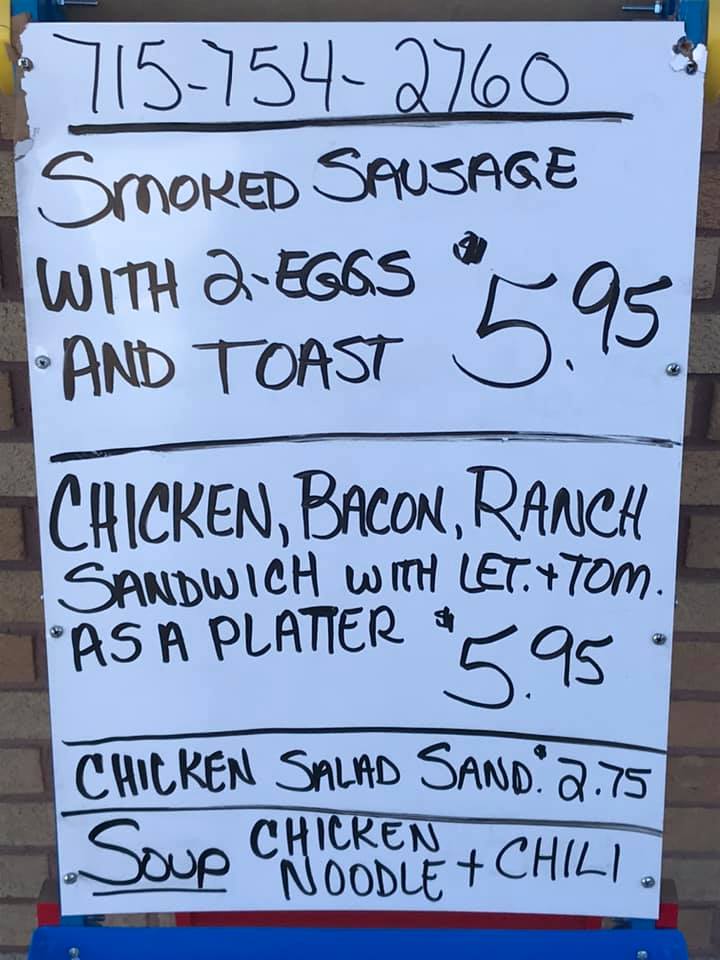 715-754-2760
SMOKED SAUSAGE
WITH 2-EGGS $5.95
AND TOAST
CHICKEN, BACON, RANCH
SANDWICH WITH LET. + TOM.
AS A PLATTER $5.95
CHICKEN SALAD SAND. $2.75
SOUP CHICKEN NOODLE + CHILI